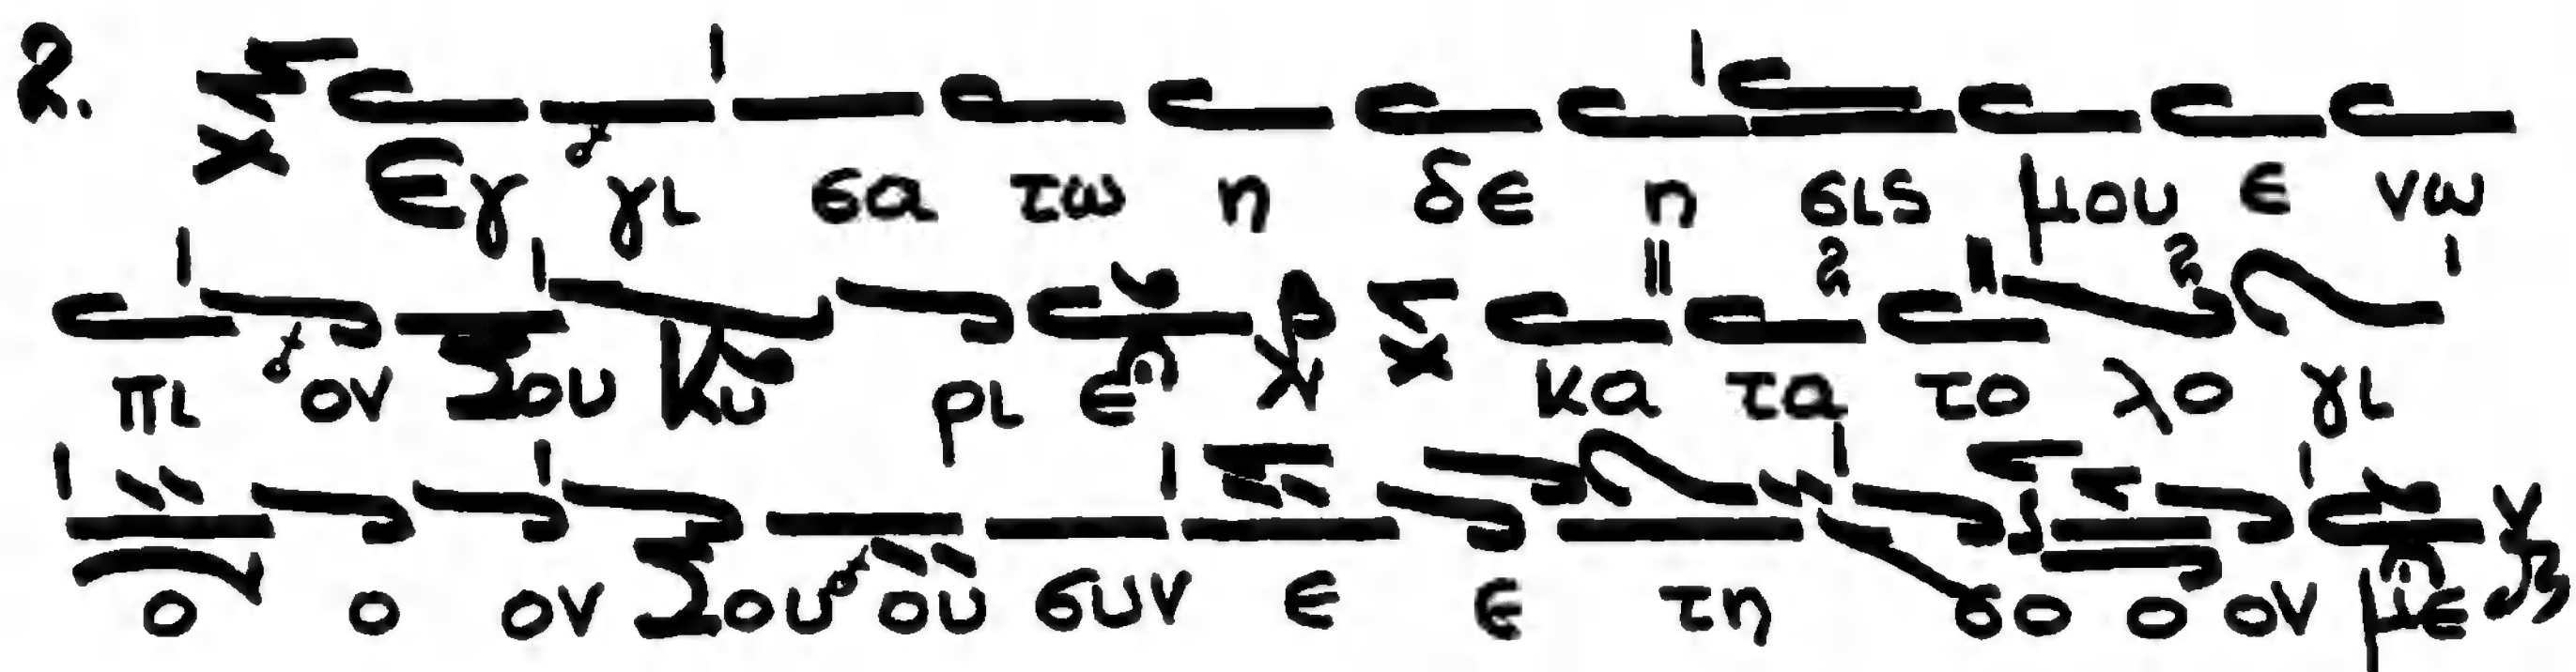 2. Εγ γι σα τω η δε η σις μου ε νω
πι ον Σου Κυ ρι ε κα τα το λο γι
ο ο ον Σου ου συν ε ε τη σο ο ον με